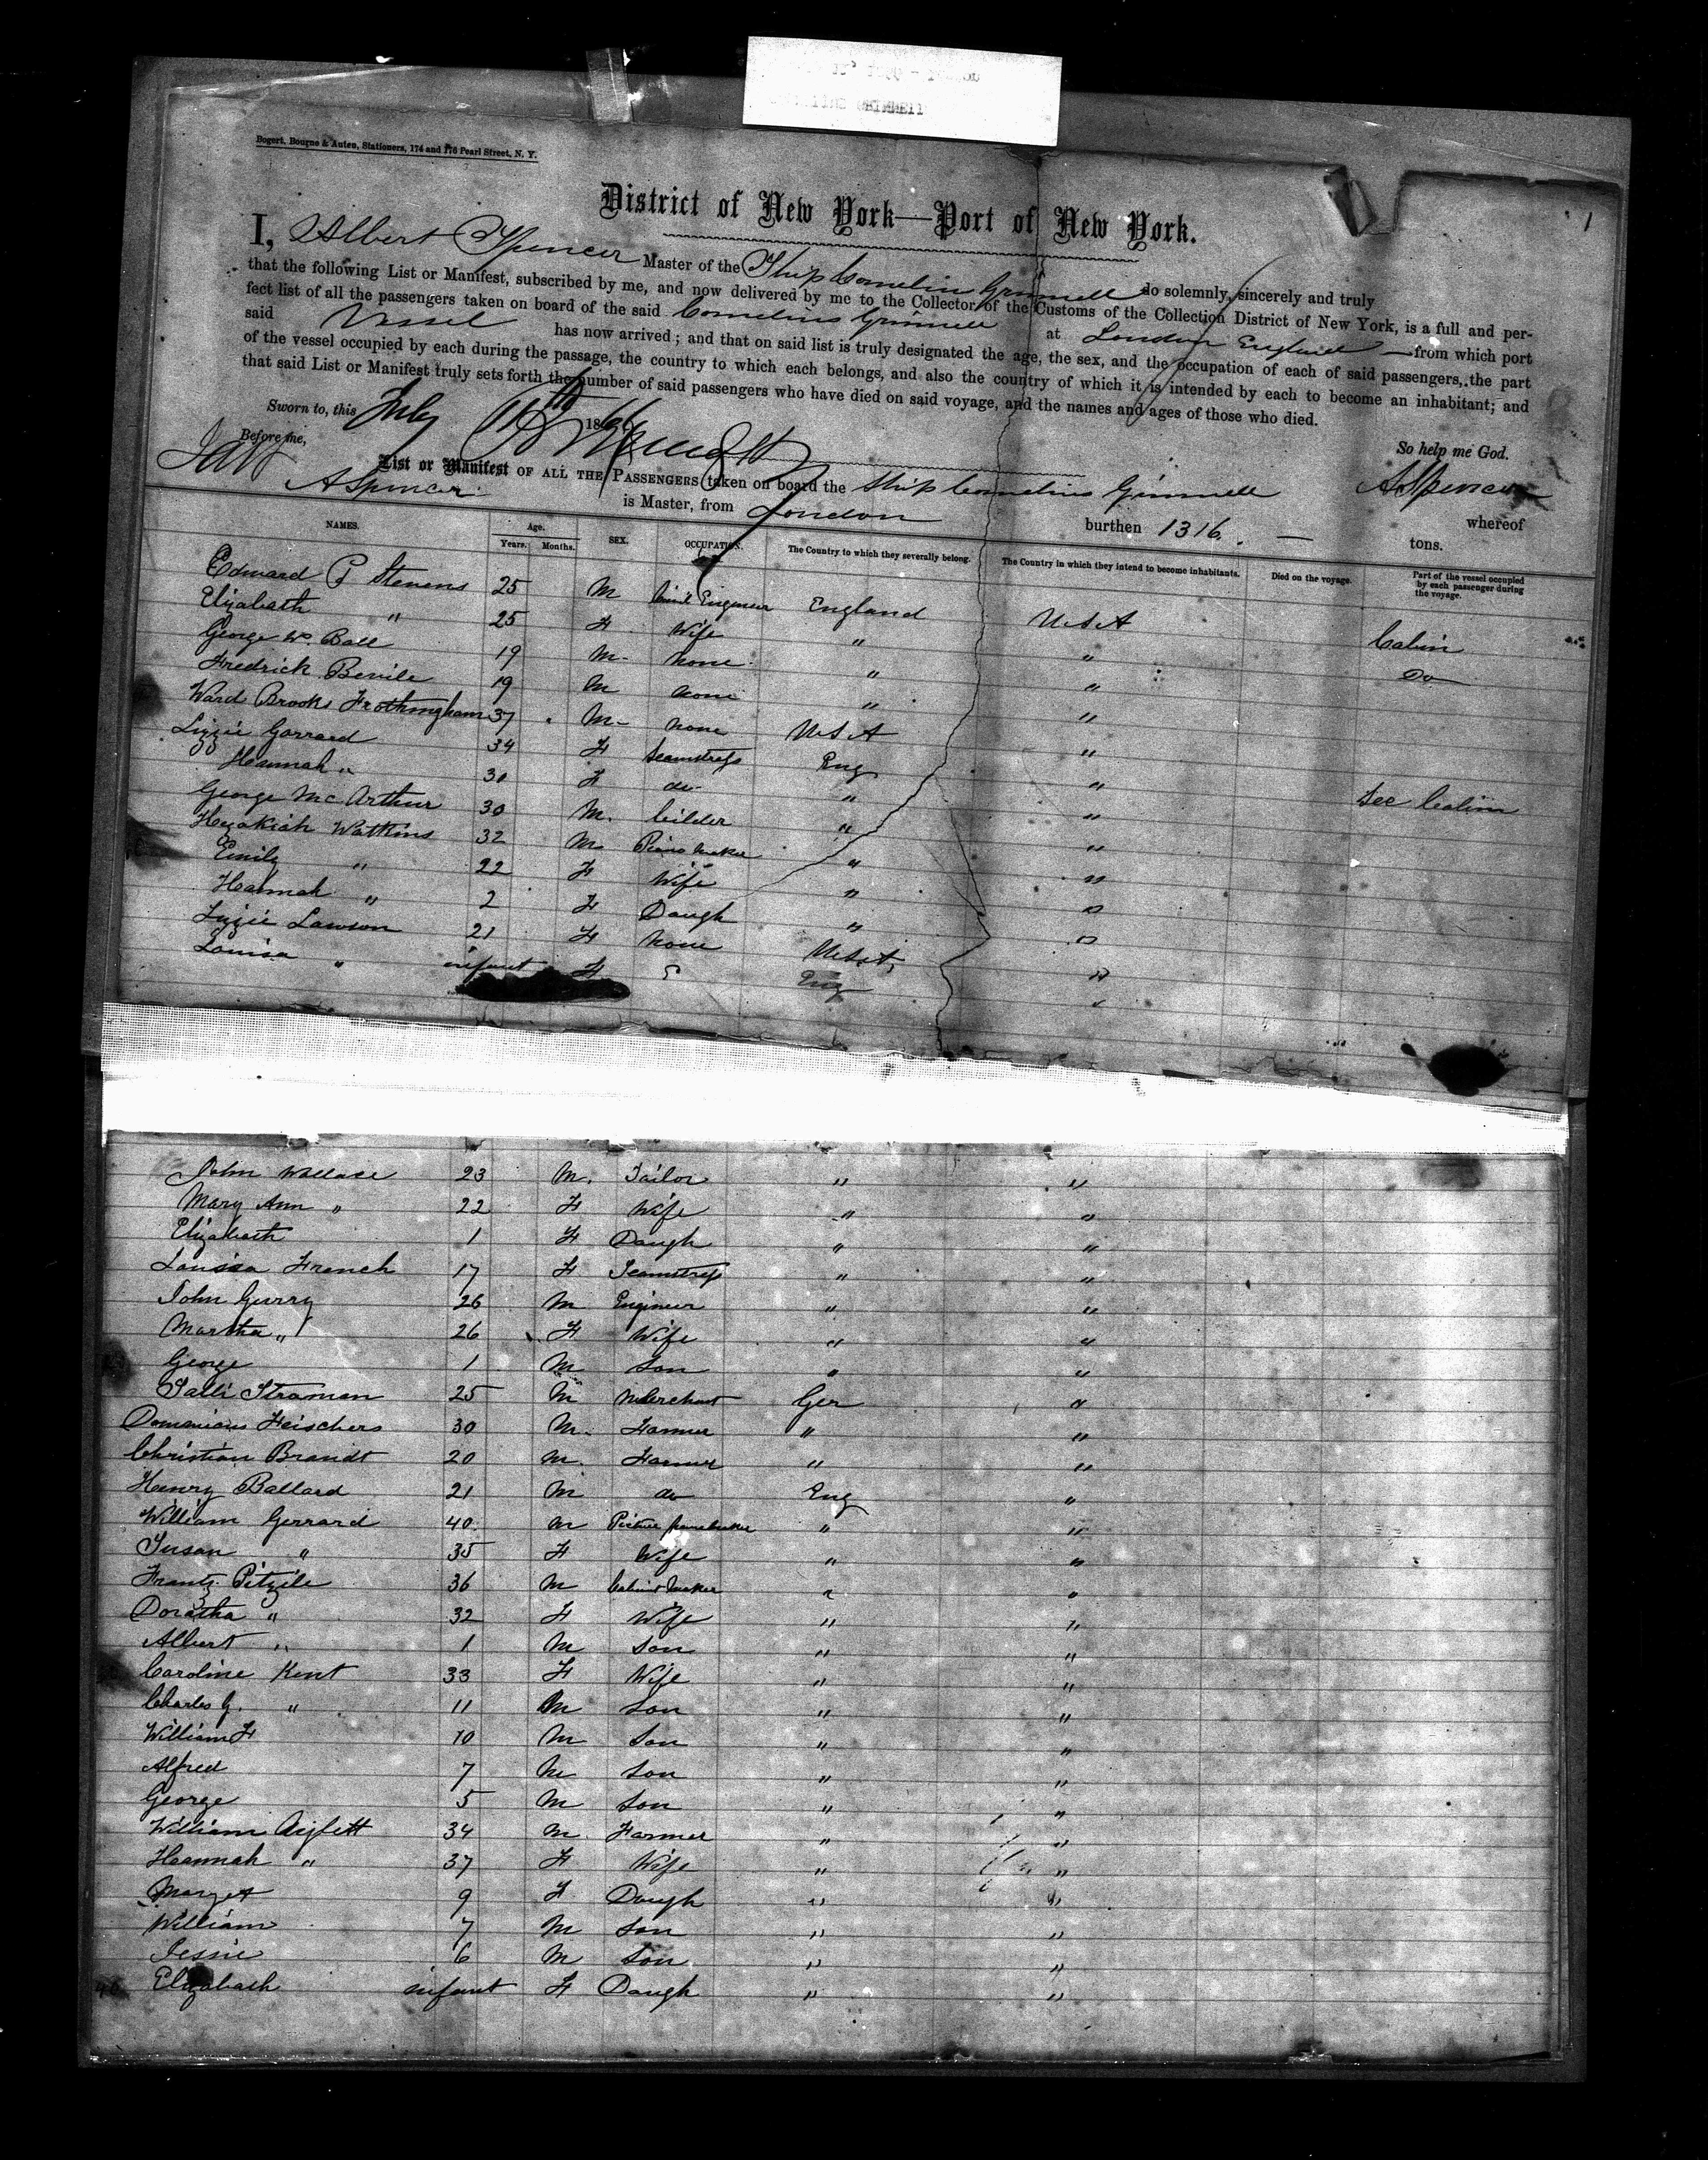 Bogert, Bourne & Auten, Stationers, 174 and 176 Pearl Street, N. Y.
1
District of New York—Port of New York.
I, Albert Spencer Master of the Ship Cornelius Grinnell do solemnly, sincerely and truly
that the following List or Manifest, subscribed by me, and now delivered by me to the Collector of the Customs of the Collection District of New York, is a full and per-
fect list of all the passengers taken on board of the said Cornelius Grinnell at London England — from which port
said Vessel has now arrived; and that on said list is truly designated the age, the sex, and the occupation of each of said passengers, the part
of the vessel occupied by each during the passage, the country to which each belongs, and also the country of which it is intended by each to become an inhabitant; and
that said List or Manifest truly sets forth the number of said passengers who have died on said voyage, and the names and ages of those who died.
Sworn to, this July 1866
So help me God.
Before me,
A Spencer
List or Manifest OF ALL THE PASSENGERS taken on board the Ship Cornelius Grinnell whereof
A Spencer is Master, from London burthen 1316. — tons.
NAMES. Age. Years. Months. SEX. OCCUPATION. The Country to which they severally belong. The Country in which they intend to become inhabitants. Died on the voyage. Part of the vessel occupied by each passenger during the voyage.
Edward P Stevens 25 M Civil Engineer England U.S.A Cabin
Elizabeth " 25 F Wife " " Do
George Wm Ball 19 M. none " "
Fredrick Bevile 19 M none " "
Ward Brooks Frothingham 37 M- none U.S.A "
Lizzie Garrard 34 F Seamstress Eng " Sec Cabin
Hannah " 30 F do " "
George Mc Arthur 30 M. Gilder " "
Hezakiah Watkins 32 M Piano Maker " "
Emily " 22 F Wife " "
Hannah " 2 F Daugh " "
Lizzie Lawson 21 F none U.S.A. "
Louisa " infant F Eng "
John Wallace 23 M. Tailor " "
Mary Ann " 22 F Wife " "
Elizabeth 1 F Daugh " "
Louisa French 17 F. Seamstress " "
John Gurry 26 M Engineer " "
Martha " 26 F Wife " "
George 1 M Son " "
Salli Straman 25 M Merchant Ger "
Domanicus Feischers 30 M. Farmer " "
Christian Brandt 20 M. Farmer " "
Henry Ballard 21 M do Eng "
William Gerrard 40 M Picture framemaker " "
Susan " 35 F Wife " "
Frantz Pitzile 36 M Cabinet Maker " "
Doratha " 32 F Wife " "
Albert " 1 M Son " "
Caroline Kent 33 F Wife " "
Charles G. " 11 M Son " "
William H 10 M Son " "
Alfred 7 M Son " "
George 5 M Son " "
William 34 M. Farmer " "
Hannah " 37 F Wife " "
Marget 9 F Daugh " "
William 7 M Son " "
Jessie 6 M Son " "
Elizabeth infant F Daugh " "